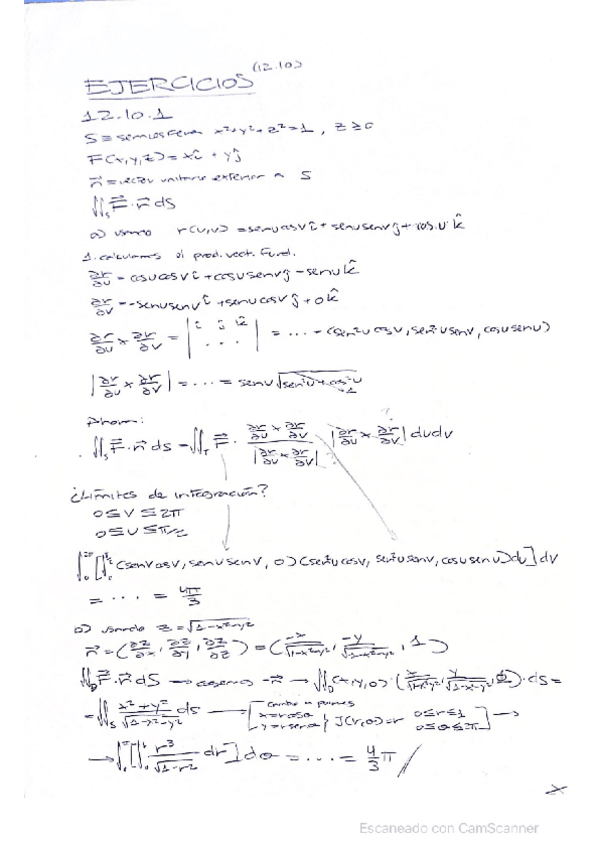 EJERCICIOS (12.10)
12.10.1
S ≡ semiesfera x²+y²+z²=1, z≥0
F(x,y,z)=xî + yĵ
n⃗ = vector unitario exterior a S
∬ₛ F⃗·n⃗ dS
a) usando r(u,v) = senucosv î + senusenv ĵ + cos.u k̂
1. calculamos el prod. vect. Fund.
∂r/∂u = cosucosv î + cosusenv ĵ - senu k̂
∂r/∂v = -senusenv î + senucosv ĵ + 0 k̂
∂r/∂u × ∂r/∂v = | î ĵ k̂ ... | = ... = (sen²u cosv, sen²u senv, cosu senu)
|∂r/∂u × ∂r/∂v| = ... = senu √(sen²u + cos²u) 1
Ahora:
∬ₛ F⃗·n⃗ ds = ∬ F⃗ · (∂r/∂u × ∂r/∂v)/|∂r/∂u × ∂r/∂v| |∂r/∂u × ∂r/∂v| dudv
¿Límites de integración?
0 ≤ v ≤ 2π
0 ≤ u ≤ π/2
(senucosv, senusenv, 0)(sen²u cosv, sen²u senv, cosu senu) du] dv
= ... = 4π/3
b) usando z = √(1-x²-y²)
n⃗ = (∂z/∂x, ∂z/∂y, ∂z/∂z) = (-x/√(1-x²-y²), -y/√(1-x²-y²), 1)
∬ F⃗·n⃗ dS → cogemos -n⃗ → ∬ (x,y,0)·(x/√(1-x²-y²), y/√(1-x²-y²), ) · ds =
= ∬ₛ (x²+y²)/√(1-x²-y²) ds → [cambio a polares x=rcosθ y=rsenθ } J(r,θ)=r 0≤r≤1] →
→ r³/√(1-r²) dr] dθ = ... = 4/3 π
Escaneado con CamScanner